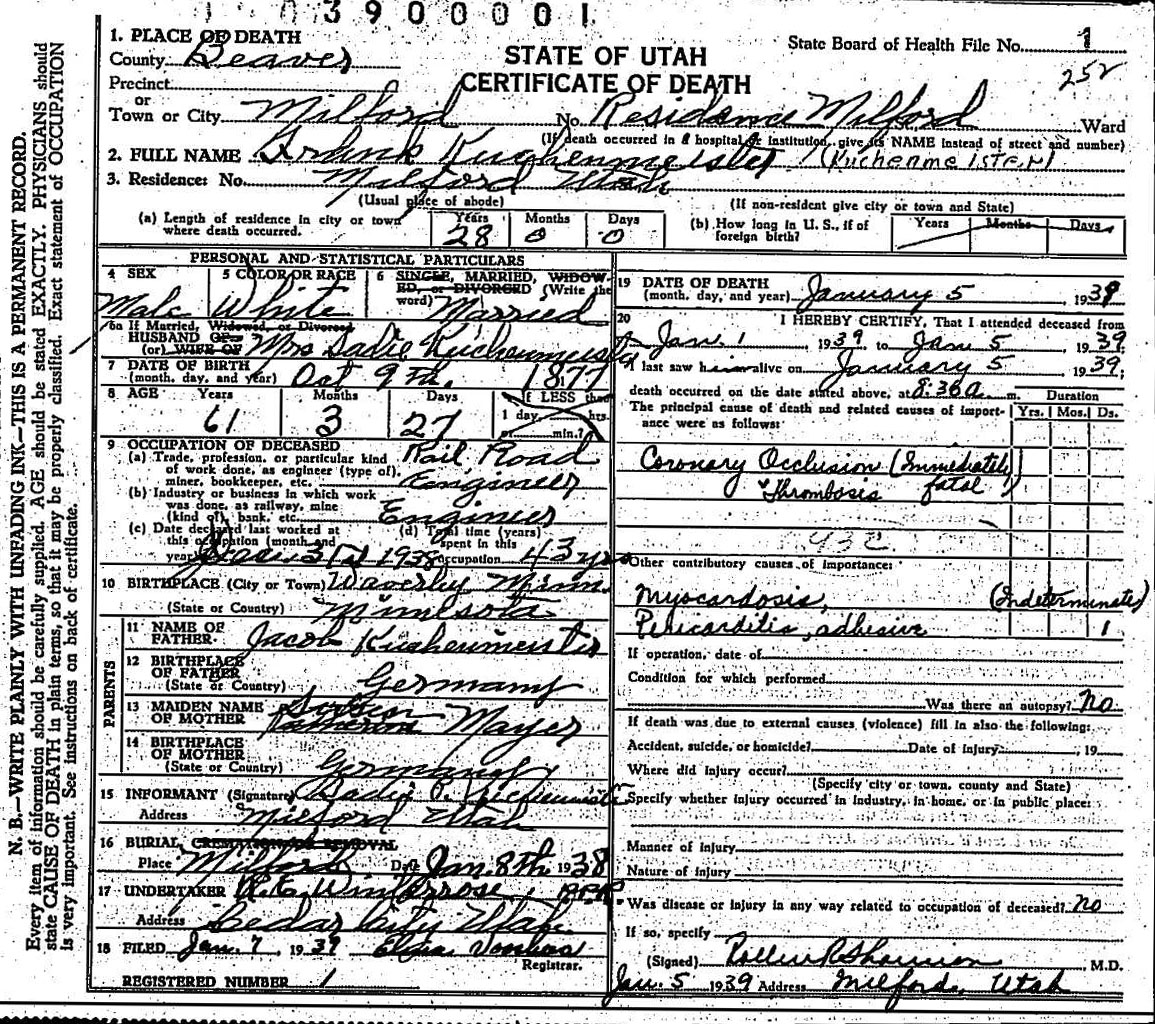 1 03900001
1. PLACE OF DEATH
County Beaver
STATE OF UTAH
CERTIFICATE OF DEATH
State Board of Health File No. 1
252
Precinct
or
Town or City Milford No. Residence Milford Ward
(If death occurred in a hospital or institution, give its NAME instead of street and number)
2. FULL NAME Frank Kuchenmeister (Kuchenmeister)
3. Residence: No. Milford Utah
(Usual place of abode) (If non-resident give city or town and State)
(a) Length of residence in city or town where death occurred. Years 28 Months 0 Days 0
(b) How long in U. S., if of foreign birth? Years Months Days
PERSONAL AND STATISTICAL PARTICULARS
4 SEX Male
5 COLOR OR RACE White
6 SINGLE, MARRIED, WIDOWED, or DIVORCED (Write the word) Married
6a If Married, Widowed, or Divorced
HUSBAND OF
(or) WIFE OF Mrs Sadie Kuchenmeister
7 DATE OF BIRTH
(month, day, and year) Oct 9th. 1877
8 AGE Years 61 Months 3 Days 27 If LESS than 1 day, hrs. or min.?
9 OCCUPATION OF DECEASED
(a) Trade, profession, or particular kind of work done, as engineer (type of), miner, bookkeeper, etc. Rail Road Engineer
(b) Industry or business in which work was done, as railway, mine (kind of), bank, etc. Engineer
(c) Date deceased last worked at this occupation (month and year) 1938
(d) Total time (years) spent in this occupation 43 yrs
10 BIRTHPLACE (City or Town) Waverley Minn.
(State or Country) Minnesota
PARENTS
11 NAME OF FATHER Jacob Kuchenmeister
12 BIRTHPLACE OF FATHER
(State or Country) Germany
13 MAIDEN NAME OF MOTHER Mayer
14 BIRTHPLACE OF MOTHER
(State or Country) Germany
15 INFORMANT (Signature) Sadie Kuchenmeister
Address Milford Utah
16 BURIAL, CREMATION OR REMOVAL
Place Milford Date Jan. 8th 1938
17 UNDERTAKER
Address Cedar City Utah
18 FILED Jan. 7 1939
Registrar.
REGISTERED NUMBER 1
19 DATE OF DEATH
(month, day, and year) January 5 1939
20 I HEREBY CERTIFY, That I attended deceased from
Jan. 1 1939 to Jan 5 1939
I last saw him alive on January 5 1939;
death occurred on the date stated above, at 8:30 a. m.
The principal cause of death and related causes of importance were as follows:
Duration
Yrs. Mos. Ds.
Coronary Occlusion (Immediately fatal)
Thrombosis
Other contributory causes of importance:
Myocardosis, (Indeterminate)
Pericarditis, adhesive 1
If operation, date of
Condition for which performed
Was there an autopsy? No
If death was due to external causes (violence) fill in also the following:
Accident, suicide, or homicide? Date of injury 19
Where did injury occur?
(Specify city or town, county and State)
Specify whether injury occurred in industry, in home, or in public place:
Manner of injury
Nature of injury
Was disease or injury in any way related to occupation of deceased? no
If so, specify
(Signed) M.D.
Jan. 5 1939 Address Milford, Utah
N. B.—WRITE PLAINLY WITH UNFADING INK—THIS IS A PERMANENT RECORD.
Every item of information should be carefully supplied. AGE should be stated EXACTLY. PHYSICIANS should
state CAUSE OF DEATH in plain terms, so that it may be properly classified. Exact statement of OCCUPATION
is very important. See instructions on back of certificate.